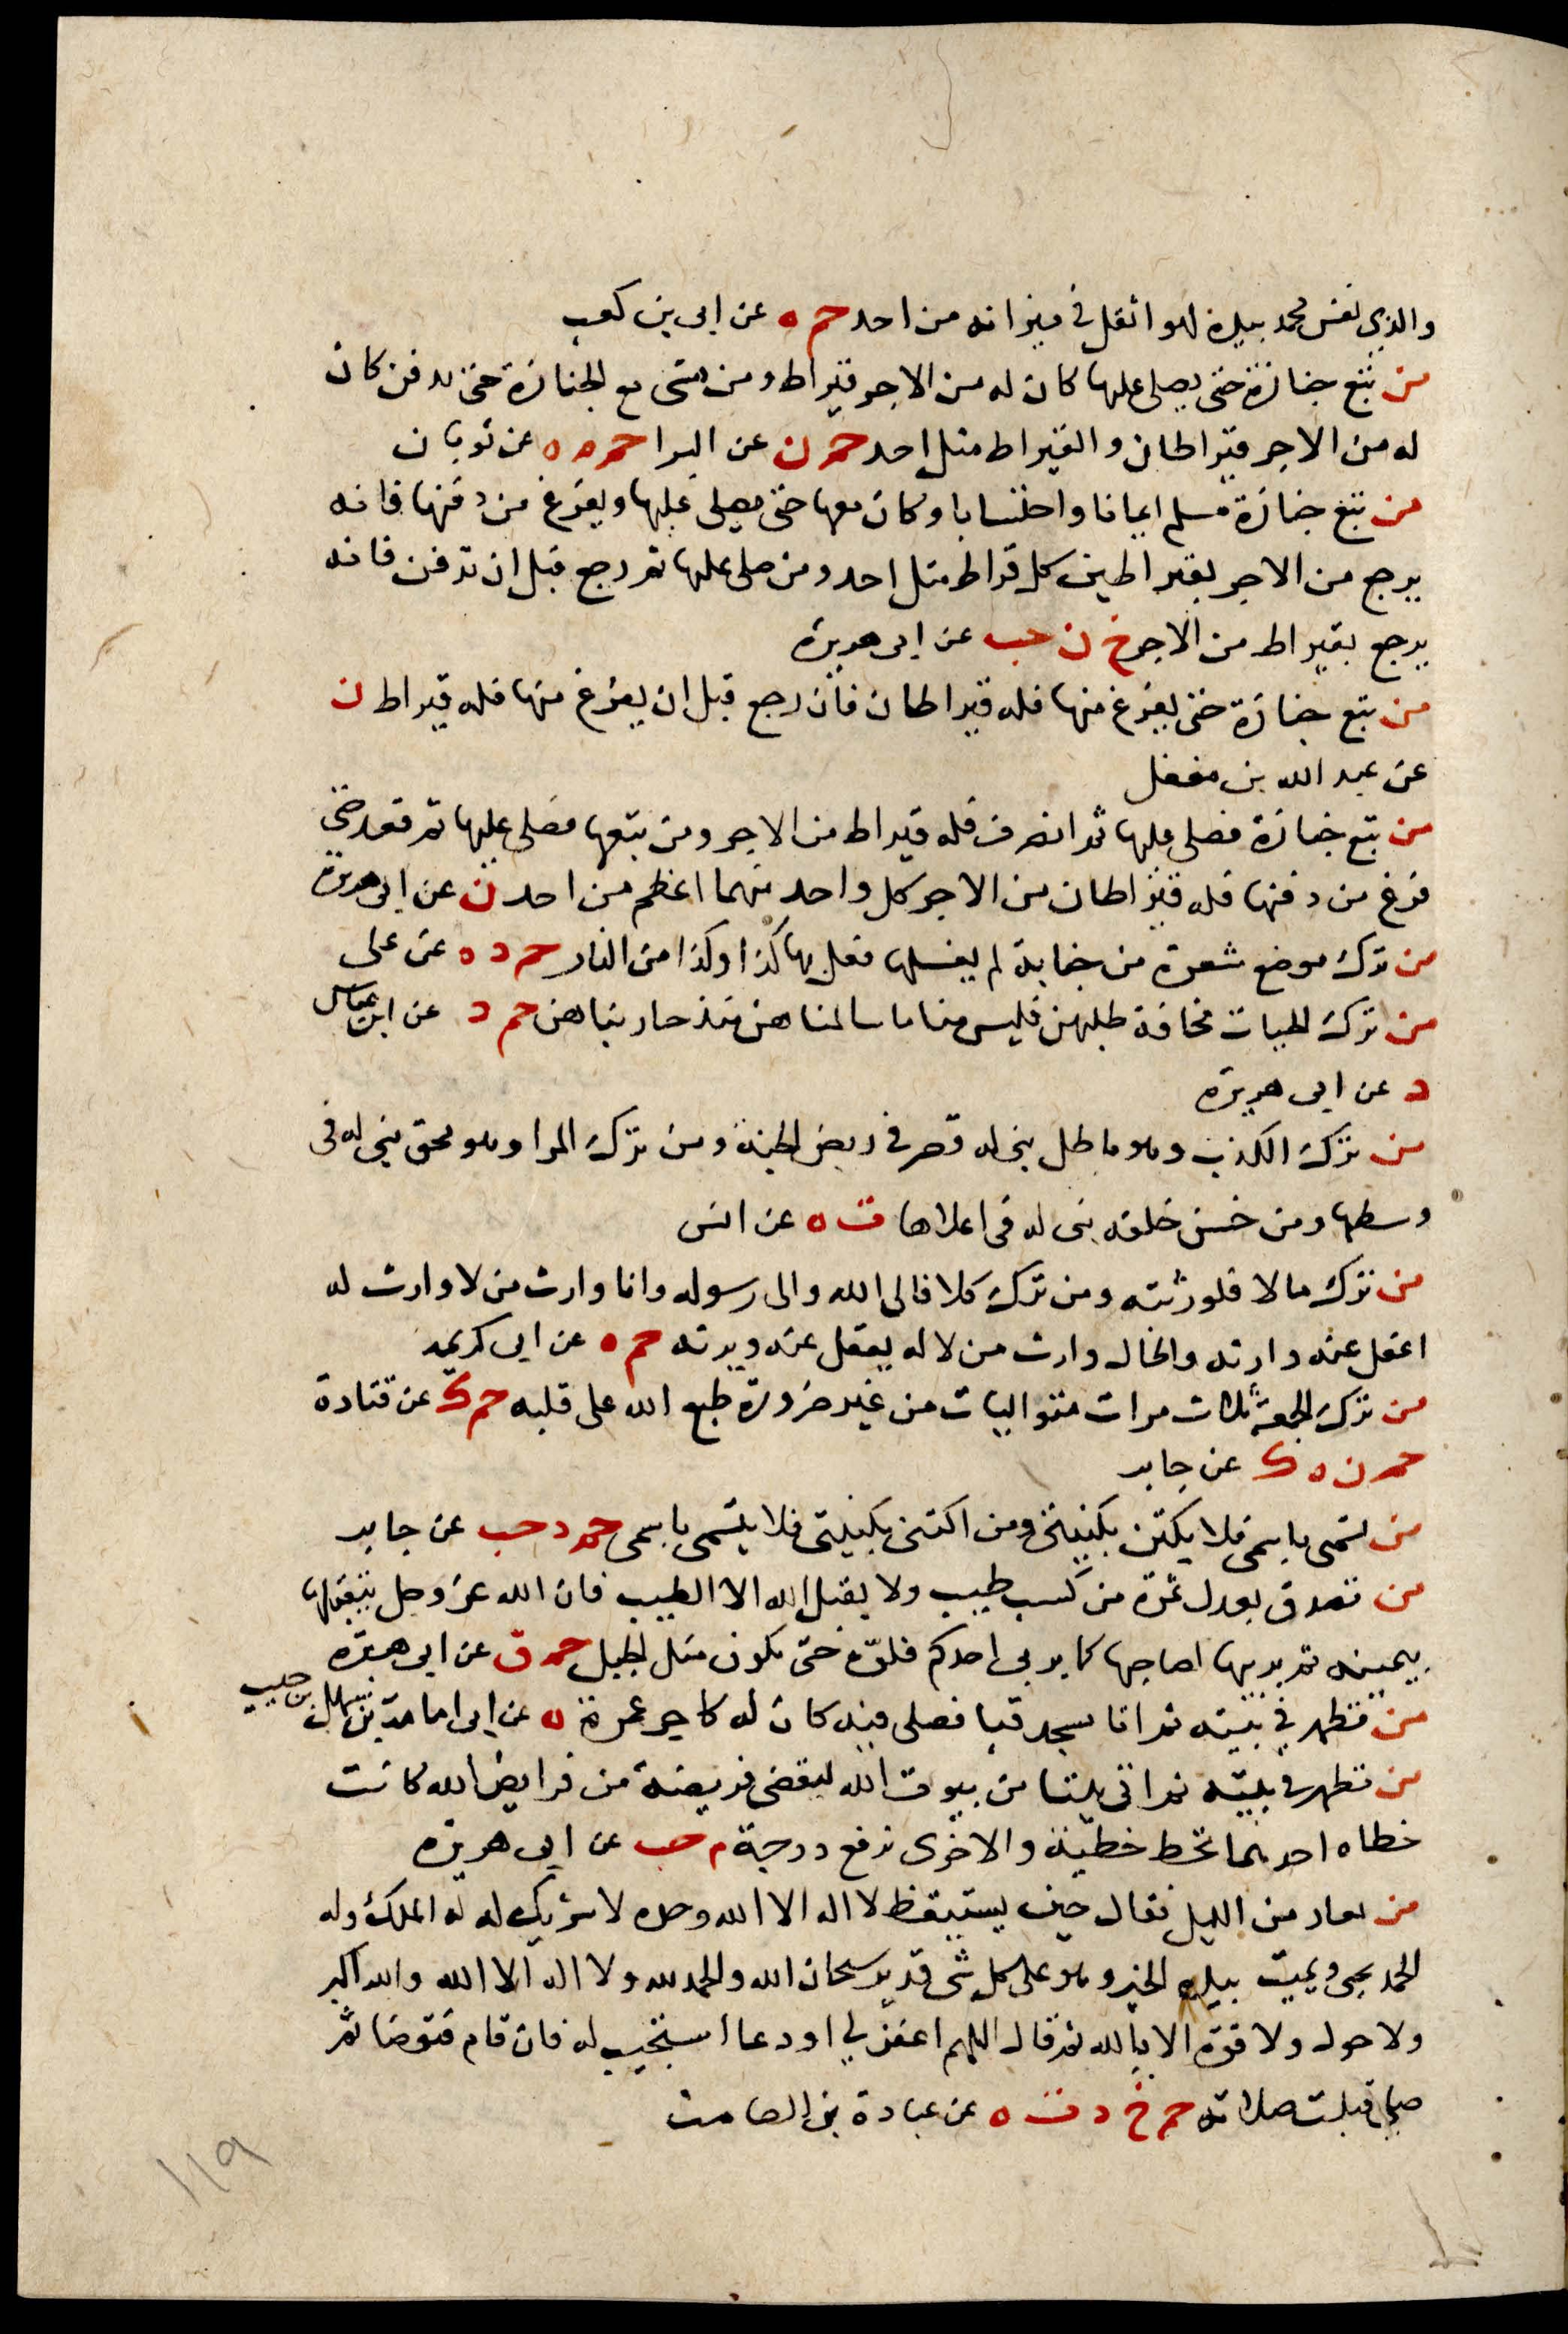 والذي نفس محمد بيده لهو اثقل في ميزانه من احد حم ه عن ابي بن كعب
من تبع جنازة حتى يصلى عليها كان له من الاجر قيراط ومن مشى مع الجنازة حتى تدفن كان
له من الاجر قيراطان والقيراط مثل احد حم ن عن البرا حم م ه عن ثوبان
من تبع جنازة مسلم ايمانا واحتسابا وكان معها حتى يصلى عليها ويفرغ من دفنها فانه
يرجع من الاجر بقيراطين كل قراط مثل احد ومن صلى عليها ثم رجع قبل ان تدفن فانه
يرجع بقيراط من الاجر خ ن حب عن ابي هريرة
من تبع جنازة حتى يفرغ منها فله قيراطان فان رجع قبل ان يفرغ منها فله قيراط ن
عن عبد الله بن مغفل
من تبع جنازة فصلى عليها ثم انصرف فله قيراط من الاجر ومن تبعها فصلى عليها ثم قعد حتى
فرغ من دفنها فله قيراطان من الاجر كل واحد منهما اعظم من احد ن عن ابي هريرة
من ترك موضع شعرة من جنابة لم يغسلها فعل بها كذا وكذا من النار حم د ه عن على
من ترك الحيات مخافة طلبهن فليس منا ما سالمناهن منذ حاربناهن حم د عن ابن عباس
د عن ابي هريرة
من ترك الكذب وهو باطل بنى له قصر في ربض الجنة ومن ترك المرا وهو محق بنى له في
وسطها ومن حسن خلقه بنى له في اعلاها ت ه عن انس
من ترك مالا فلورثته ومن ترك كلا فالى الله والى رسوله وانا وارث من لا وارث له
اعقل عنه وارثه والخال وارث من لا له يعقل عنه ويرثه حم ه عن ابي كريمه
من ترك الجمعة ثلاث مرات متواليات من غير ضرورة طبع الله على قلبه حم ك عن قتادة
حم ن ه ك عن جابر
من تسمى باسمي فلا يكتن بكنيتي ومن اكتنى بكنيتي فلا يتسمى باسمى حم د حب عن جابر
من تصدق بعدل تمرة من كسب طيب ولا يقبل الله الا الطيب فان الله عز وجل يتقبلها
بيمينه ثم يربيها لصاحبها كما يربى احدكم فلوه حتى تكون مثل الجبل حم ق عن ابي هريرة
من تطهر في بيته ثم اتا مسجد قبا فصلى فيه كان له كاجر عمرة ه عن ابي امامة بن سهل بن حنيف
من تطهر في بيته ثم اتى بيتا من بيوت الله ليقضى فريضة من فرايض الله كانت
خطاه احدهما تحط خطيئة والاخرى ترفع درجة م حب عن ابي هريرة
من تعار من الليل فقال حين يستيقظ لا اله الا الله وحده لا شريك له له الملك وله
الحمد يحيى ويميت بيده الخير وهو على كل شى قدير سبحان الله والحمد لله ولا اله الا الله والله اكبر
ولا حول ولا قوة الا بالله ثم قال اللهم اغفر لي او دعا استجيب له فان قام فتوضا ثم
صلى قبلت صلاته حم خ د ت ه عن عبادة بن الصامت
١١٩